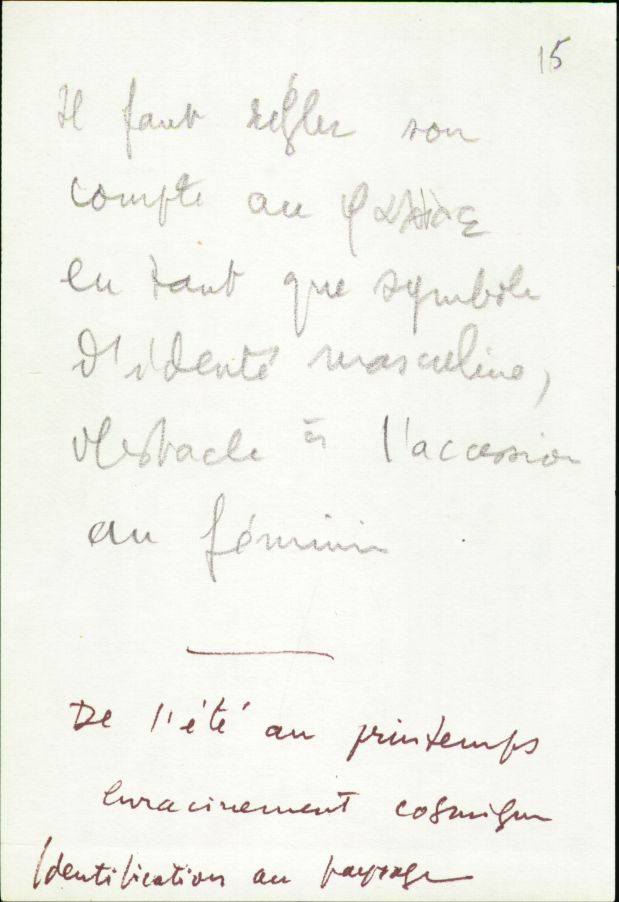 15
Il faut régler son
compte au
en tant que symbole
d'identé masculine,
obstacle à l'accession
au féminin
De l'été au printemps
enracinement cosmique
Identification au paysage